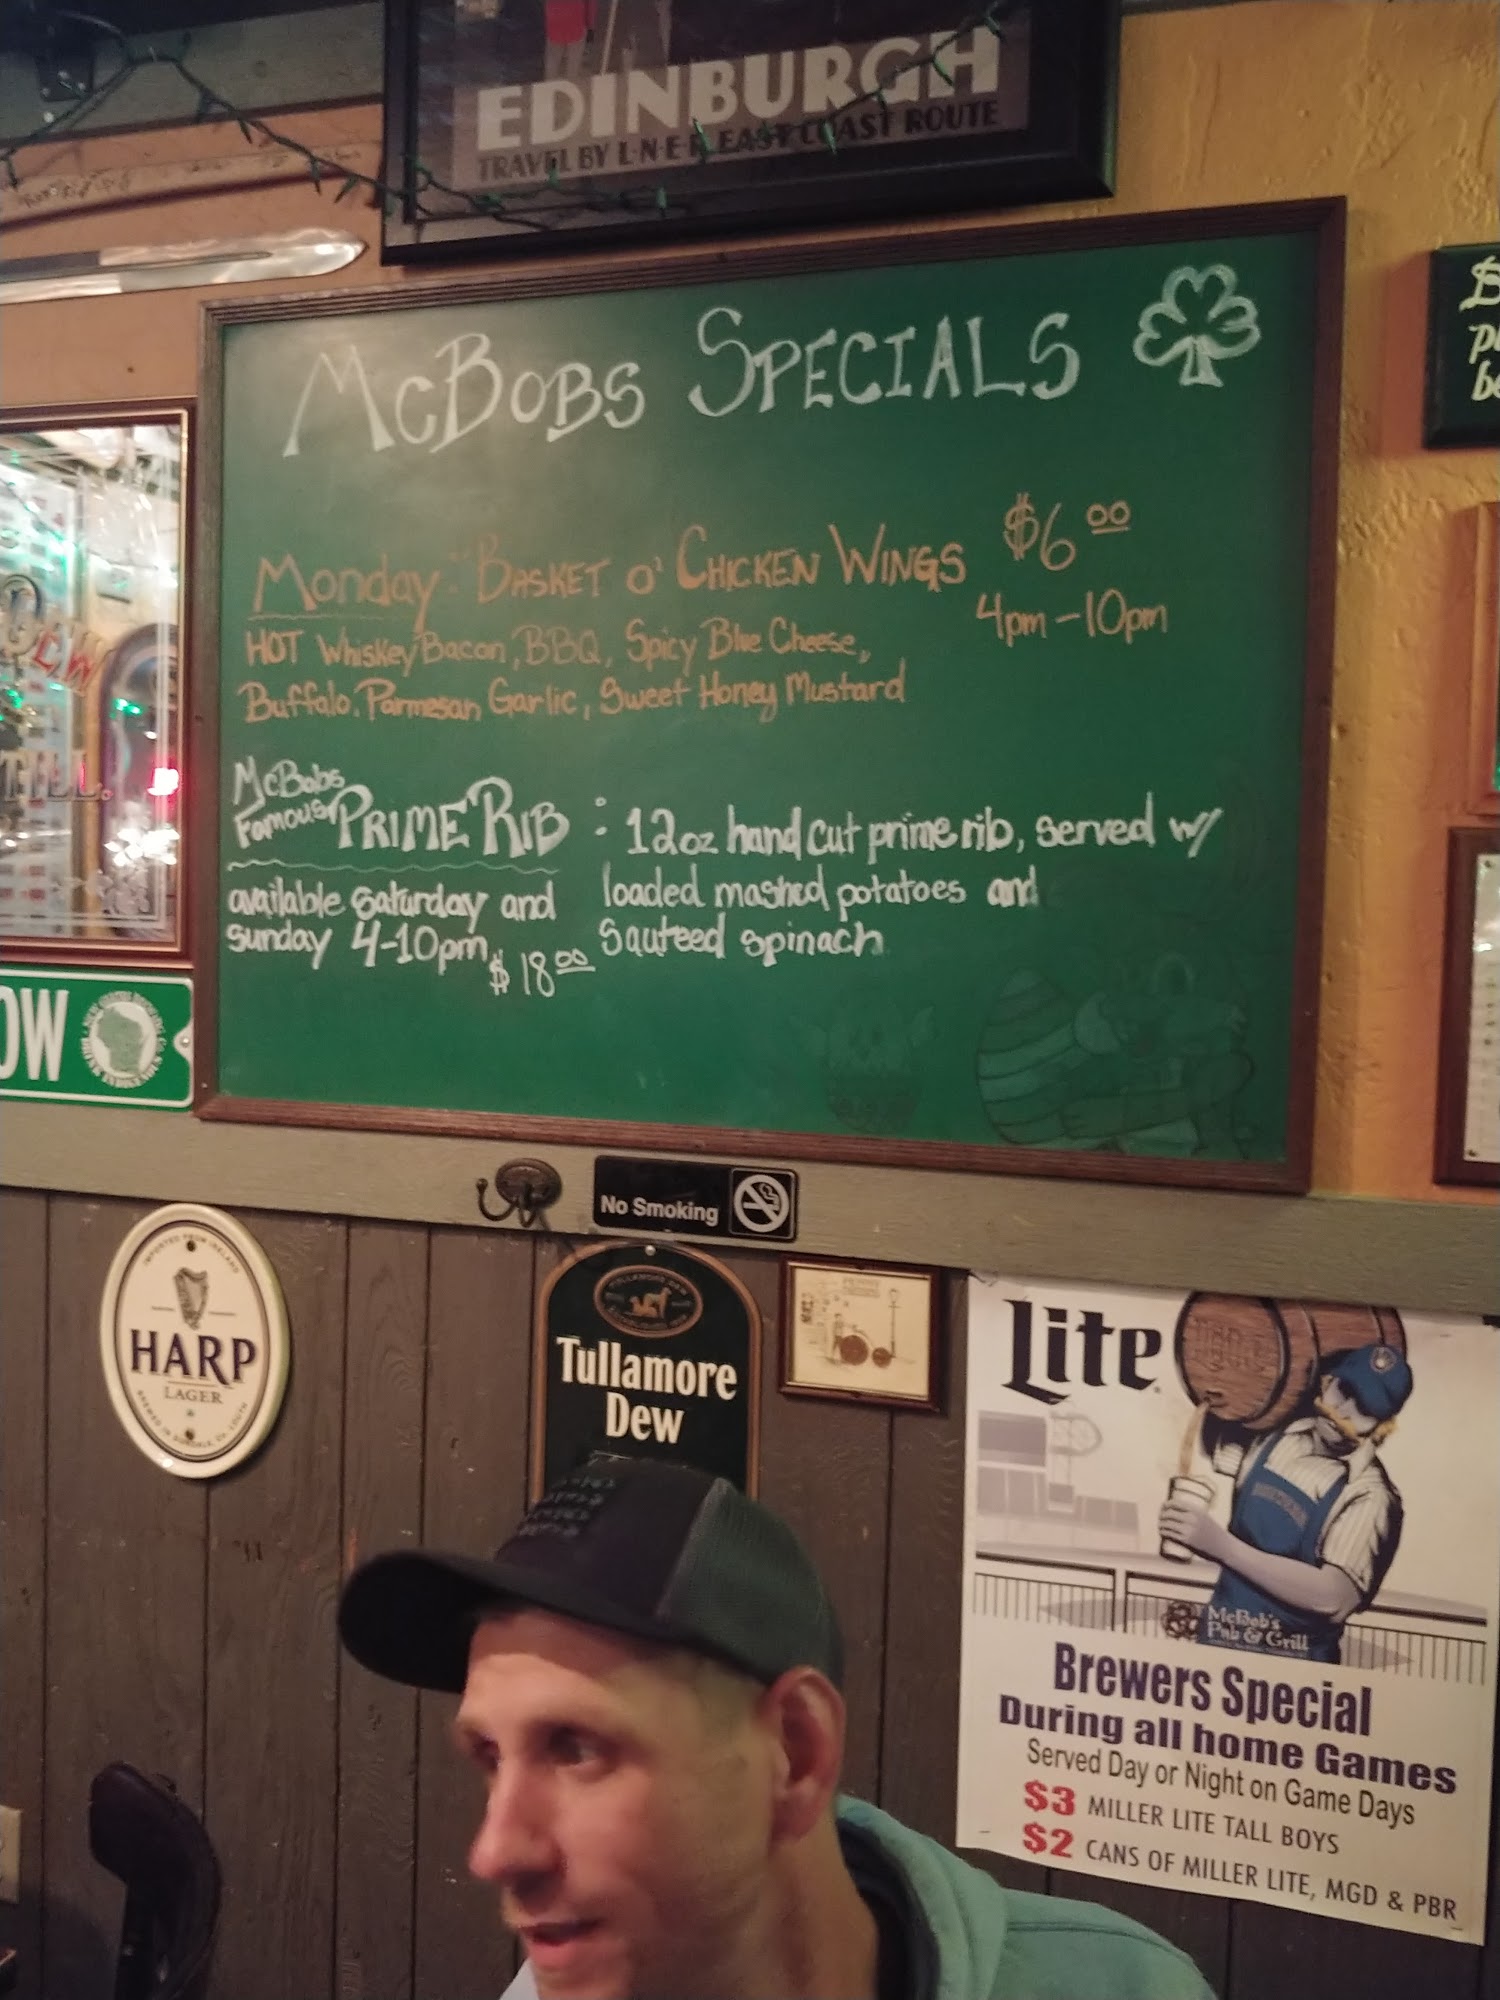 EDINBURGH
TRAVEL BY L·N·E·R EAST COAST ROUTE
McBobs Specials
Monday: "Basket o' Chicken Wings $6.00
4pm-10pm
HOT Whiskey Bacon, BBQ, Spicy Blue Cheese,
Buffalo, Parmesan Garlic, Sweet Honey Mustard
McBobs
Famous PRIME RIB : 12oz hand cut prime rib, served w/
available Saturday and loaded mashed potatoes and
Sunday 4-10pm $18.00 Sauteed spinach
OW
TILL.
No Smoking
IMPORTED FROM IRELAND
HARP
LAGER
TULLAMORE DEW
Tullamore
Dew
Lite
McBob's
Pub & Grill
Brewers Special
During all home Games
Served Day or Night on Game Days
$3 MILLER LITE TALL BOYS
$2 CANS OF MILLER LITE, MGD & PBR